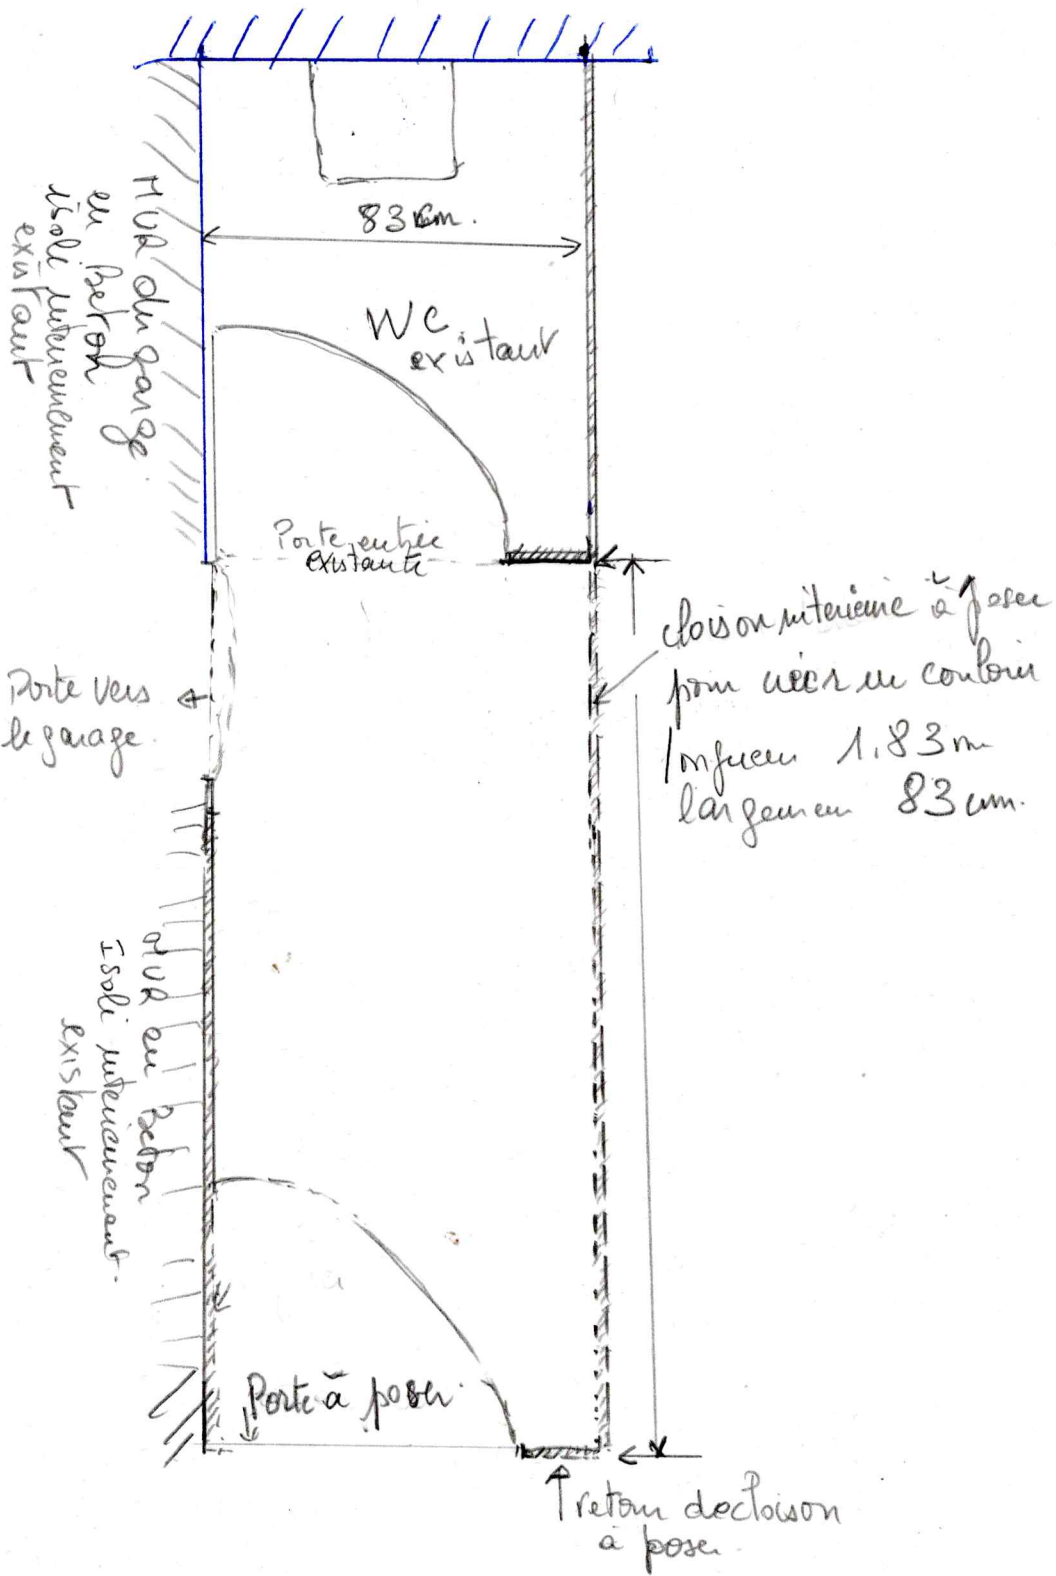 83 cm.
WC
existant
MUR du garage
en Beton
isolé interieurement
existant
Porte entrée
existante
Porte vers
le garage.
cloison interieure à poser
pour créer un couloir
longueur 1.83m
largeur 83 cm.
MUR en Beton
Isolé interieurement.
existant
Porte à poser.
retour de cloison
à poser.